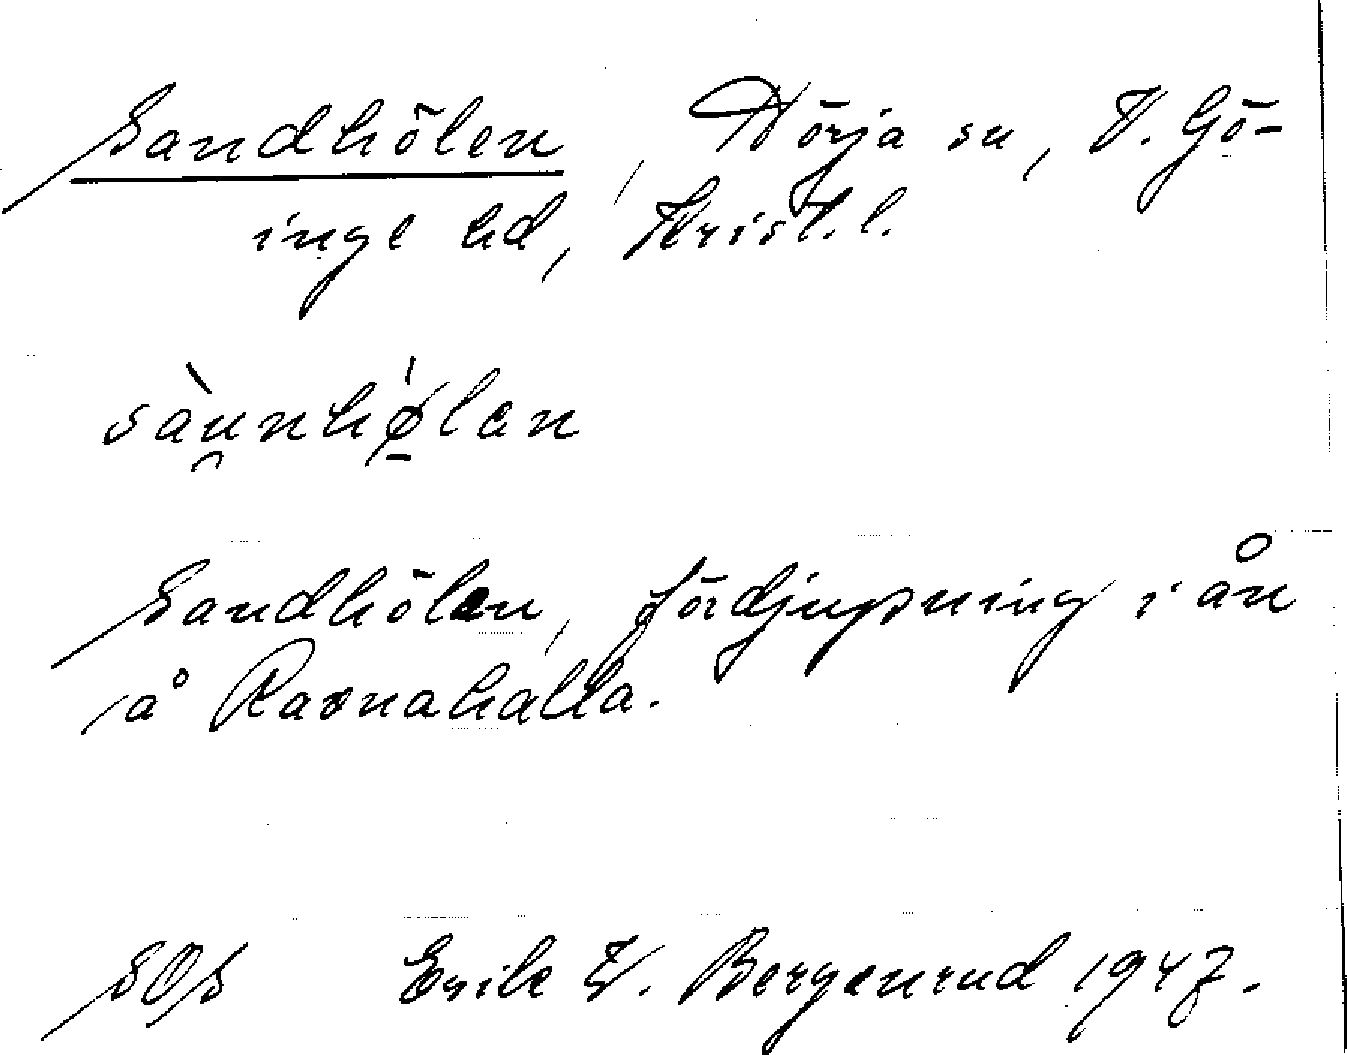 Sandhölen, Nörja sn, V. Gö-
inge hd, Krist. l.
sànnhø̱̀len
Sandhölen, fördjupning i ån
å Ravnahalla.
SOS Erik W. Bergenrud 1947.